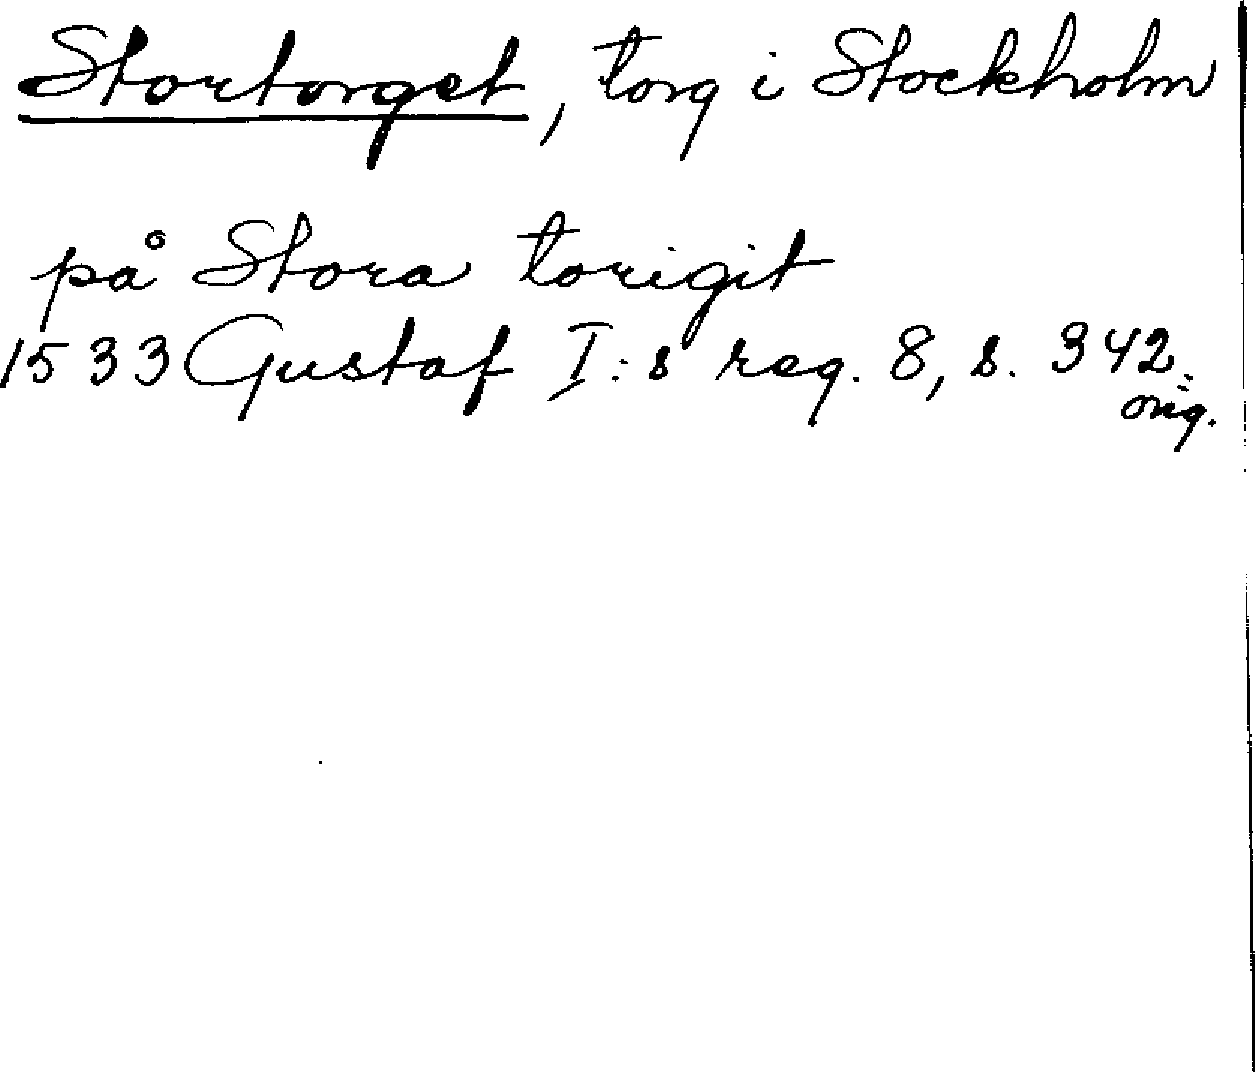 Stortorget, torg i Stockholm
på Stora torigit
1533 Gustaf I:s reg. 8, s. 342.
orig.